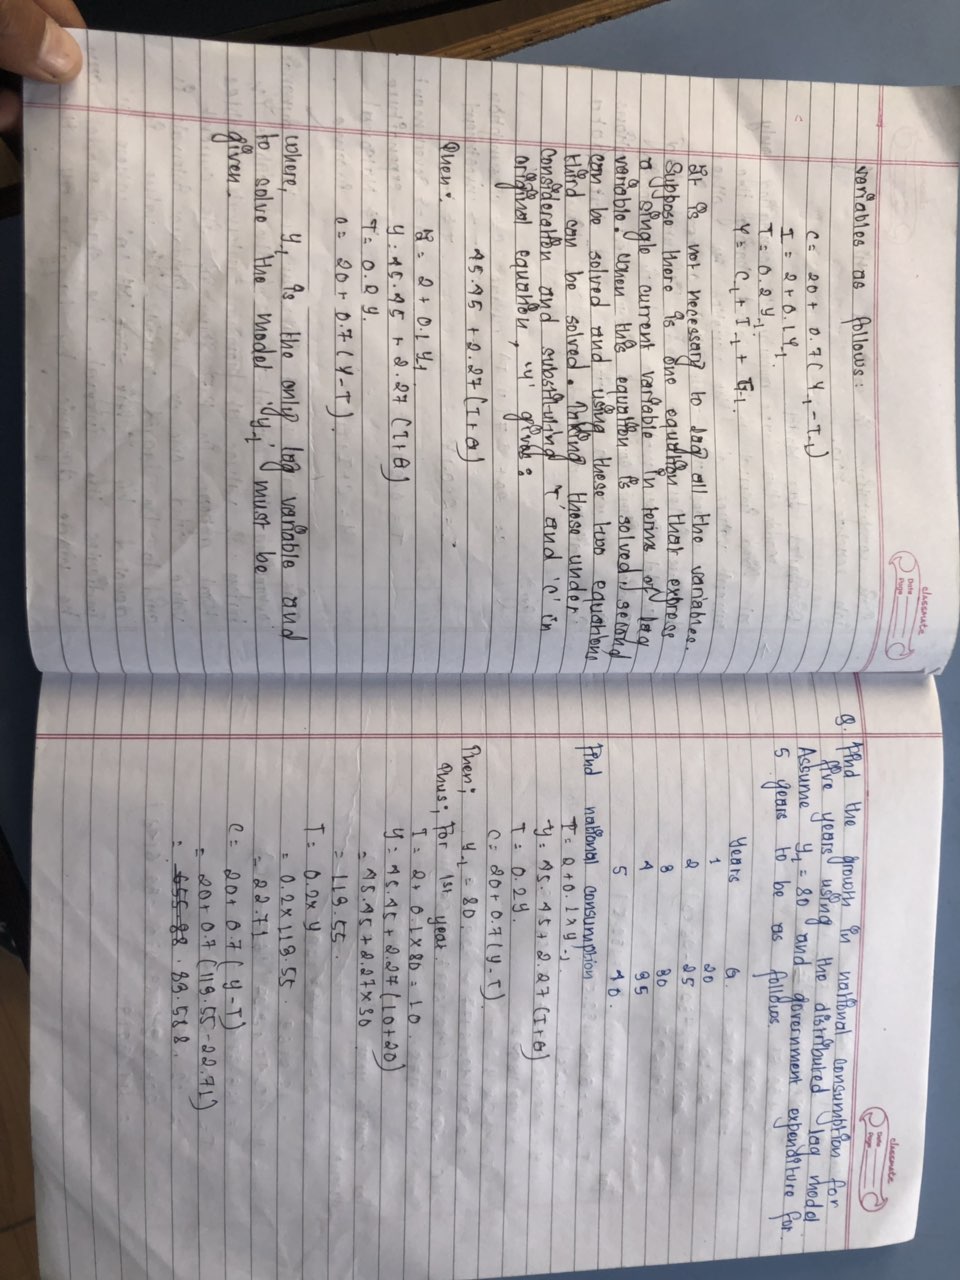 classmate
Date
Page
variables as follows:
C = 20 + 0.7 (Y-1 - T-1)
I = 2 + 0.1 Y-1
T = 0.2 Y-1
Y = C-1 + I-1 + G-1.
It is not necessary to lag all the variables.
Suppose there is one equation that express
a single current variable in terms of lag
variable. when this equation is solved, second
can be solved and using these two equations
third can be solved. Taking these under
consideration and substituting 'T' and 'C' in
original equation, 'Y' gives:
45.45 + 2.27 (I + G)
Then:
I = 2 + 0.1 Y-1
Y = 45.45 + 2.27 (I + G)
T = 0.2 Y.
C = 20 + 0.7 (Y - T)
where, Y-1 is the only lag variable and
to solve the model 'Y-1' must be
given.
classmate
Date
Page
Q. Find the growth in national consumption for
five years using the distributed lag model
Assume Y-1 = 80 and government expenditure for
5 years to be as follows.
Years G.
1 20
2 25
3 30
4 35
5 40.
Find national consumption
I = 2 + 0.1 × Y-1.
Y = 45.45 + 2.27 (I + G)
T = 0.2 Y.
C = 20 + 0.7 (Y - T)
Then; Y-1 = 80.
Thus; for 1st year.
I = 2 + 0.1 × 80 = 10
Y = 45.45 + 2.27 (10 + 20)
= 45.45 + 2.27 × 30
= 113.55.
T = 0.2 × Y
= 0.2 × 113.55.
= 22.71
C = 20 + 0.7 (Y - T)
= 20 + 0.7 (113.55 - 22.71)
= 83.588.